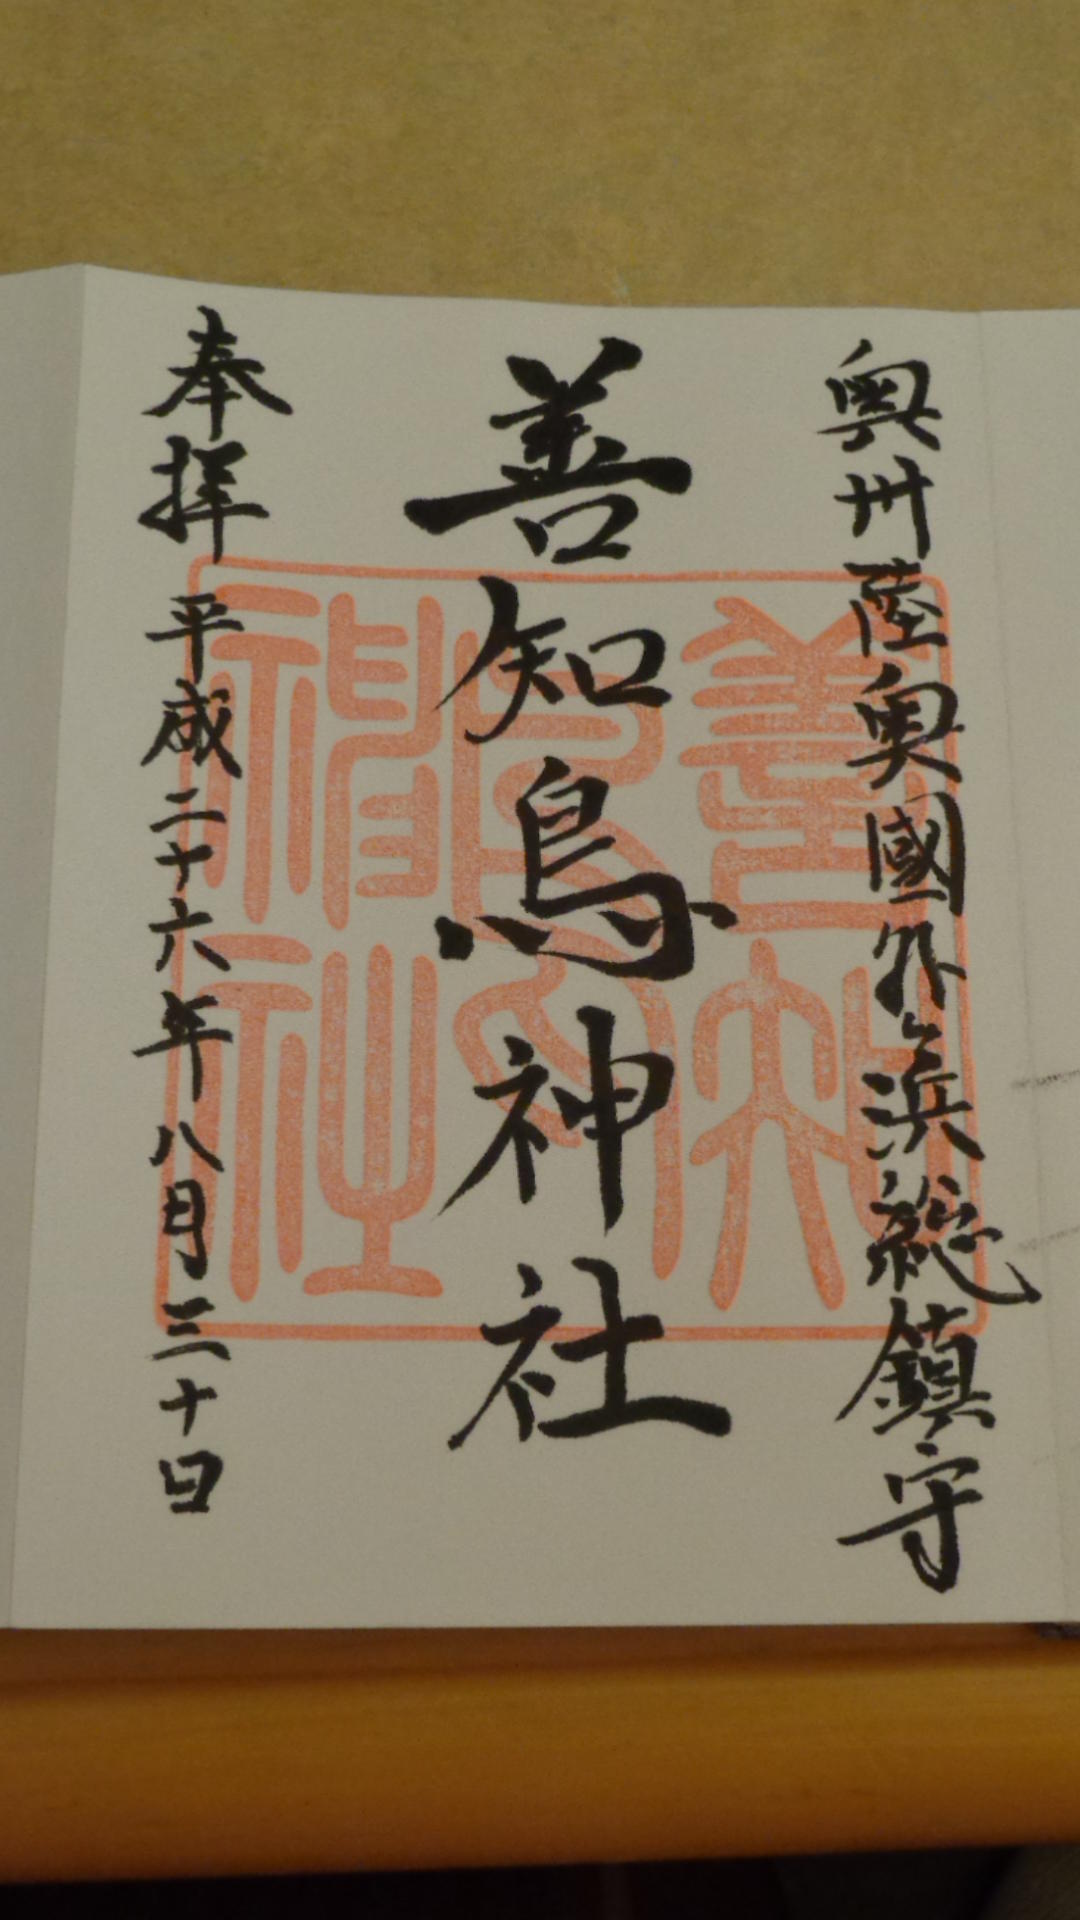 奥州陸奥國外ヶ浜総鎮守
善知鳥神社
奉拝 平成二十六年八月三十日
善知鳥神社